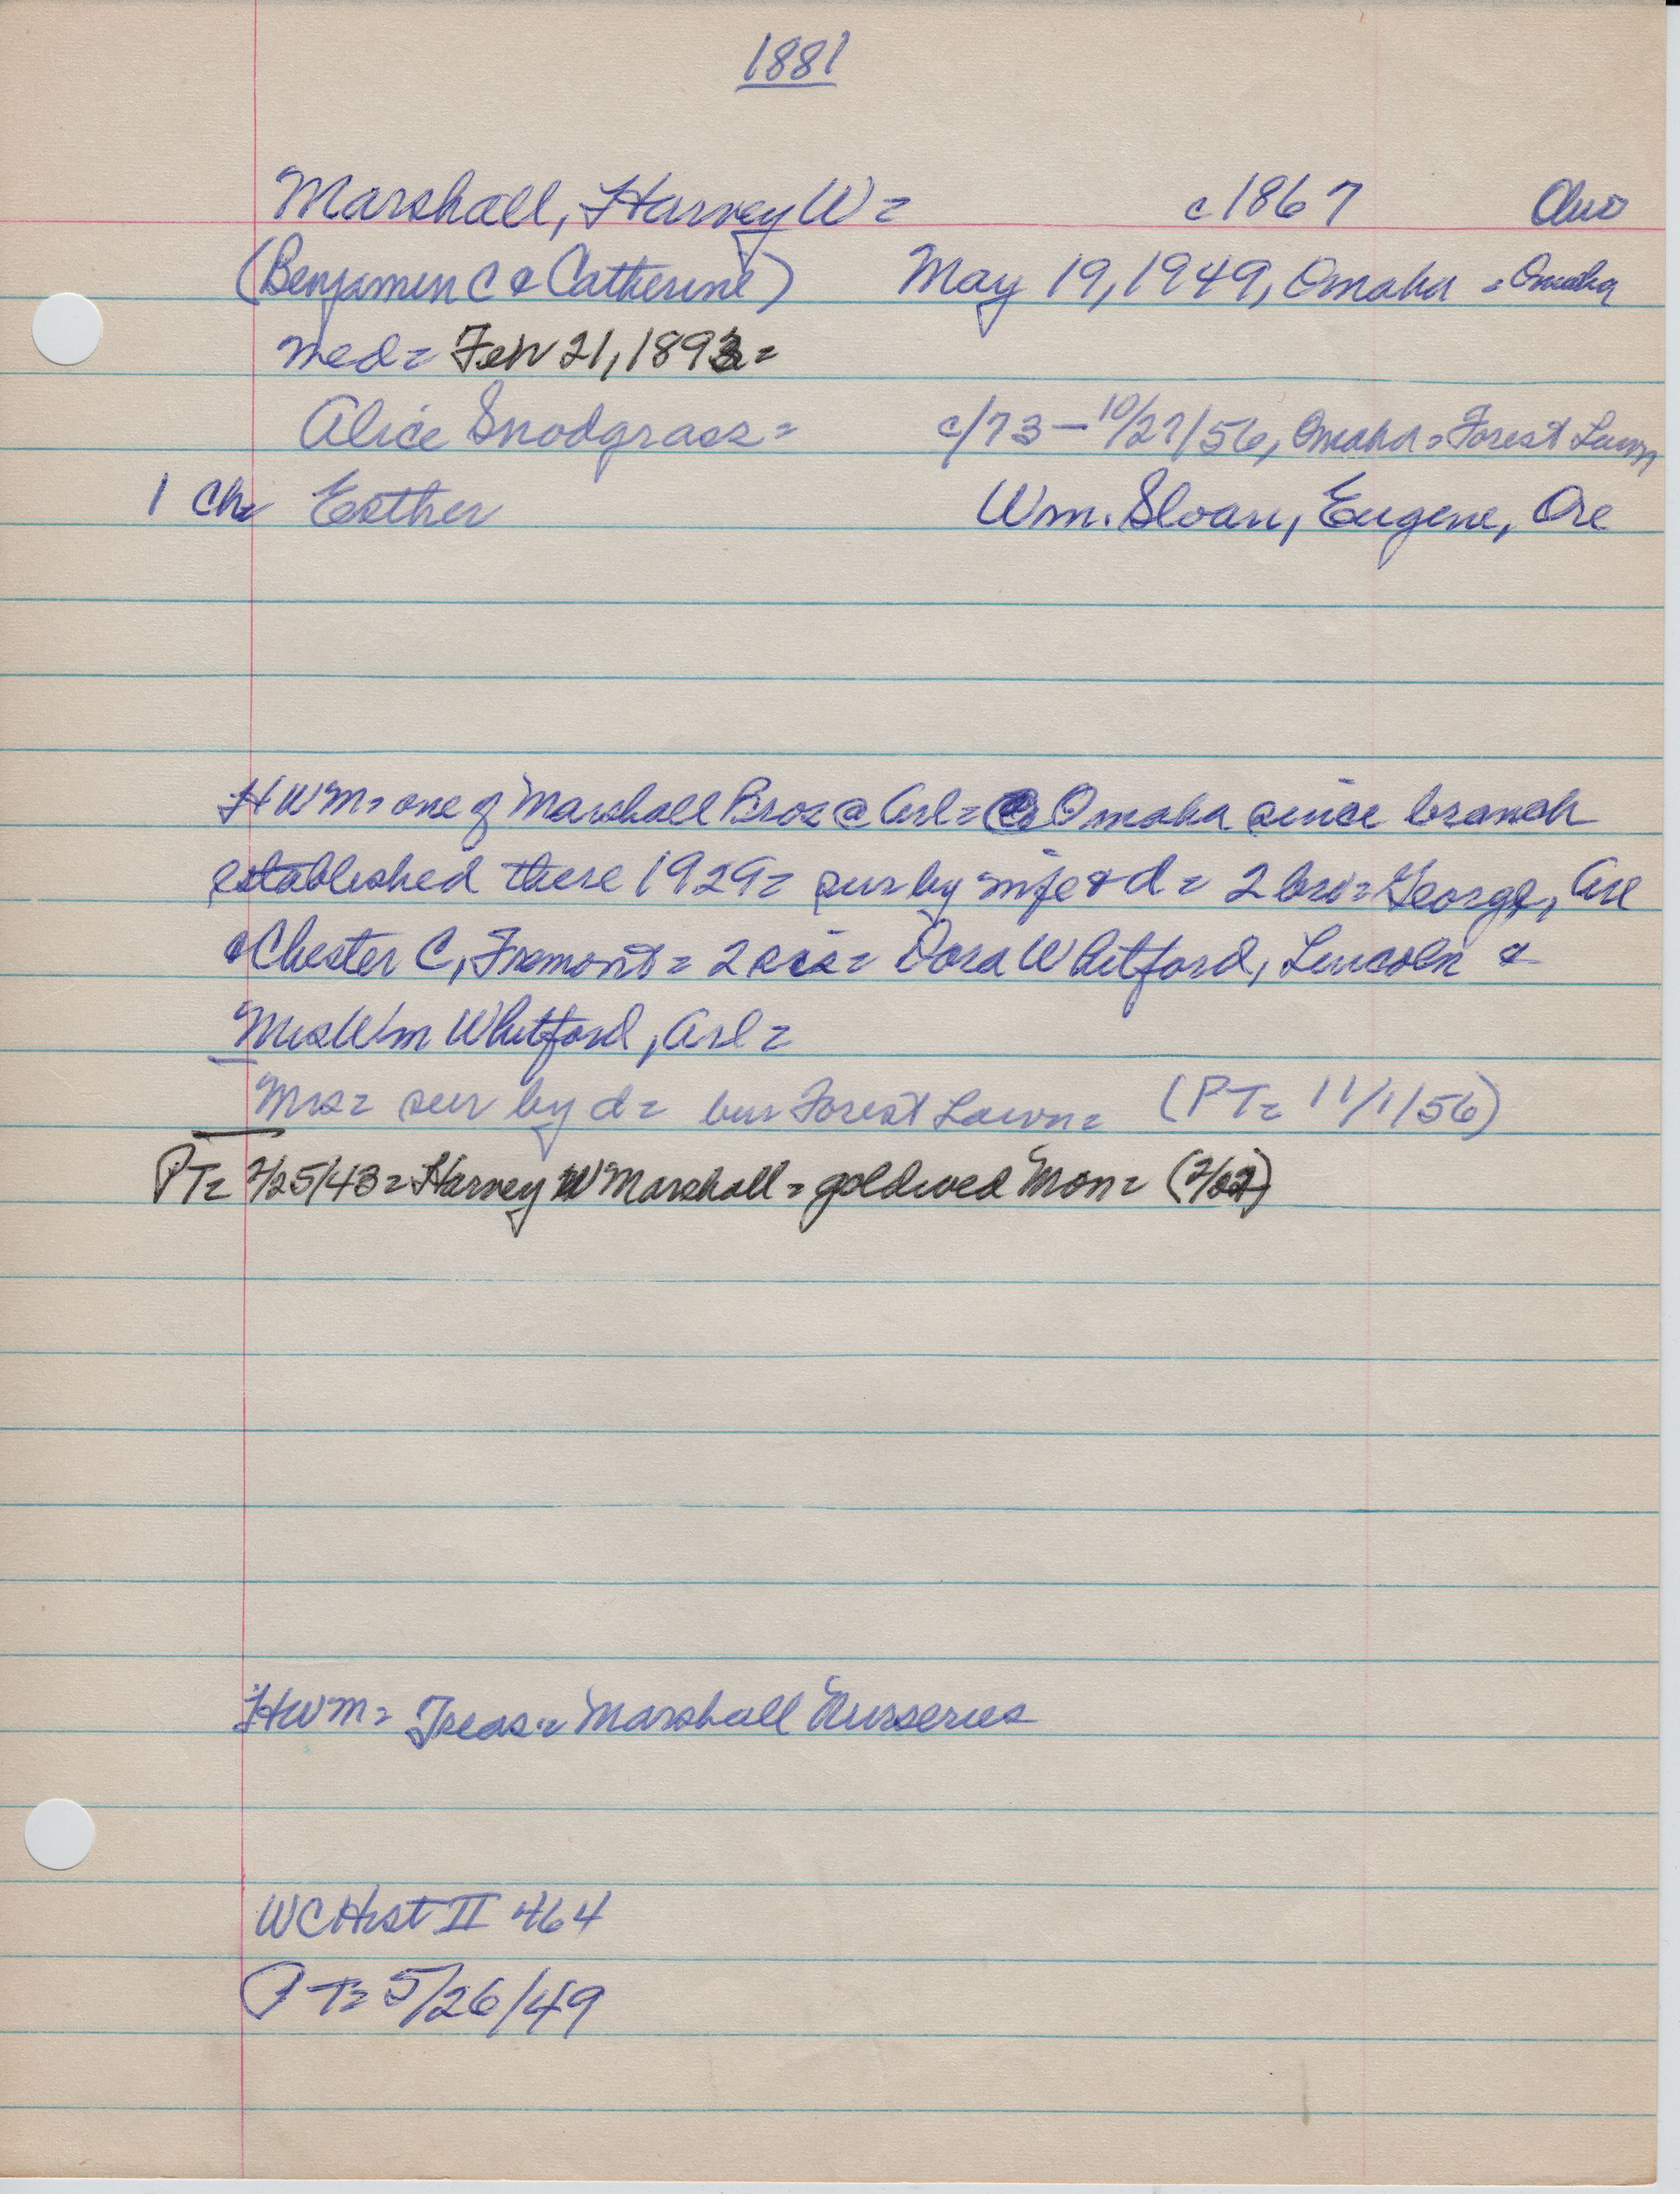 1881
Marshall, Harvey W = c1867 Ohio
(Benjamin C & Catherine) May 19, 1949, Omaha = Omaha
med = Feb 21, 1893 =
Alice Snodgrass = c/73 - 10/27/56, Omaha = Forest Lawn
1 Ch = Esther Wm. Sloan, Eugene, Ore
HWM = one of Marshall Bros @ Arl = Omaha since branch
established there 1929 = sur by wife & d = 2 bro = George, Arl
& Chester C, Fremont = 2 sis = Dora Whitford, Lincoln &
Mrs Wm Whitford, Arl =
Mrs = sur by d = bur Forest Lawn = (PT = 11/1/56)
PT = 2/25/43 = Harvey W Marshall = gold wed Mon =
HWM = Treas = Marshall Nurseries
WC Hist II 464
PT = 5/26/49